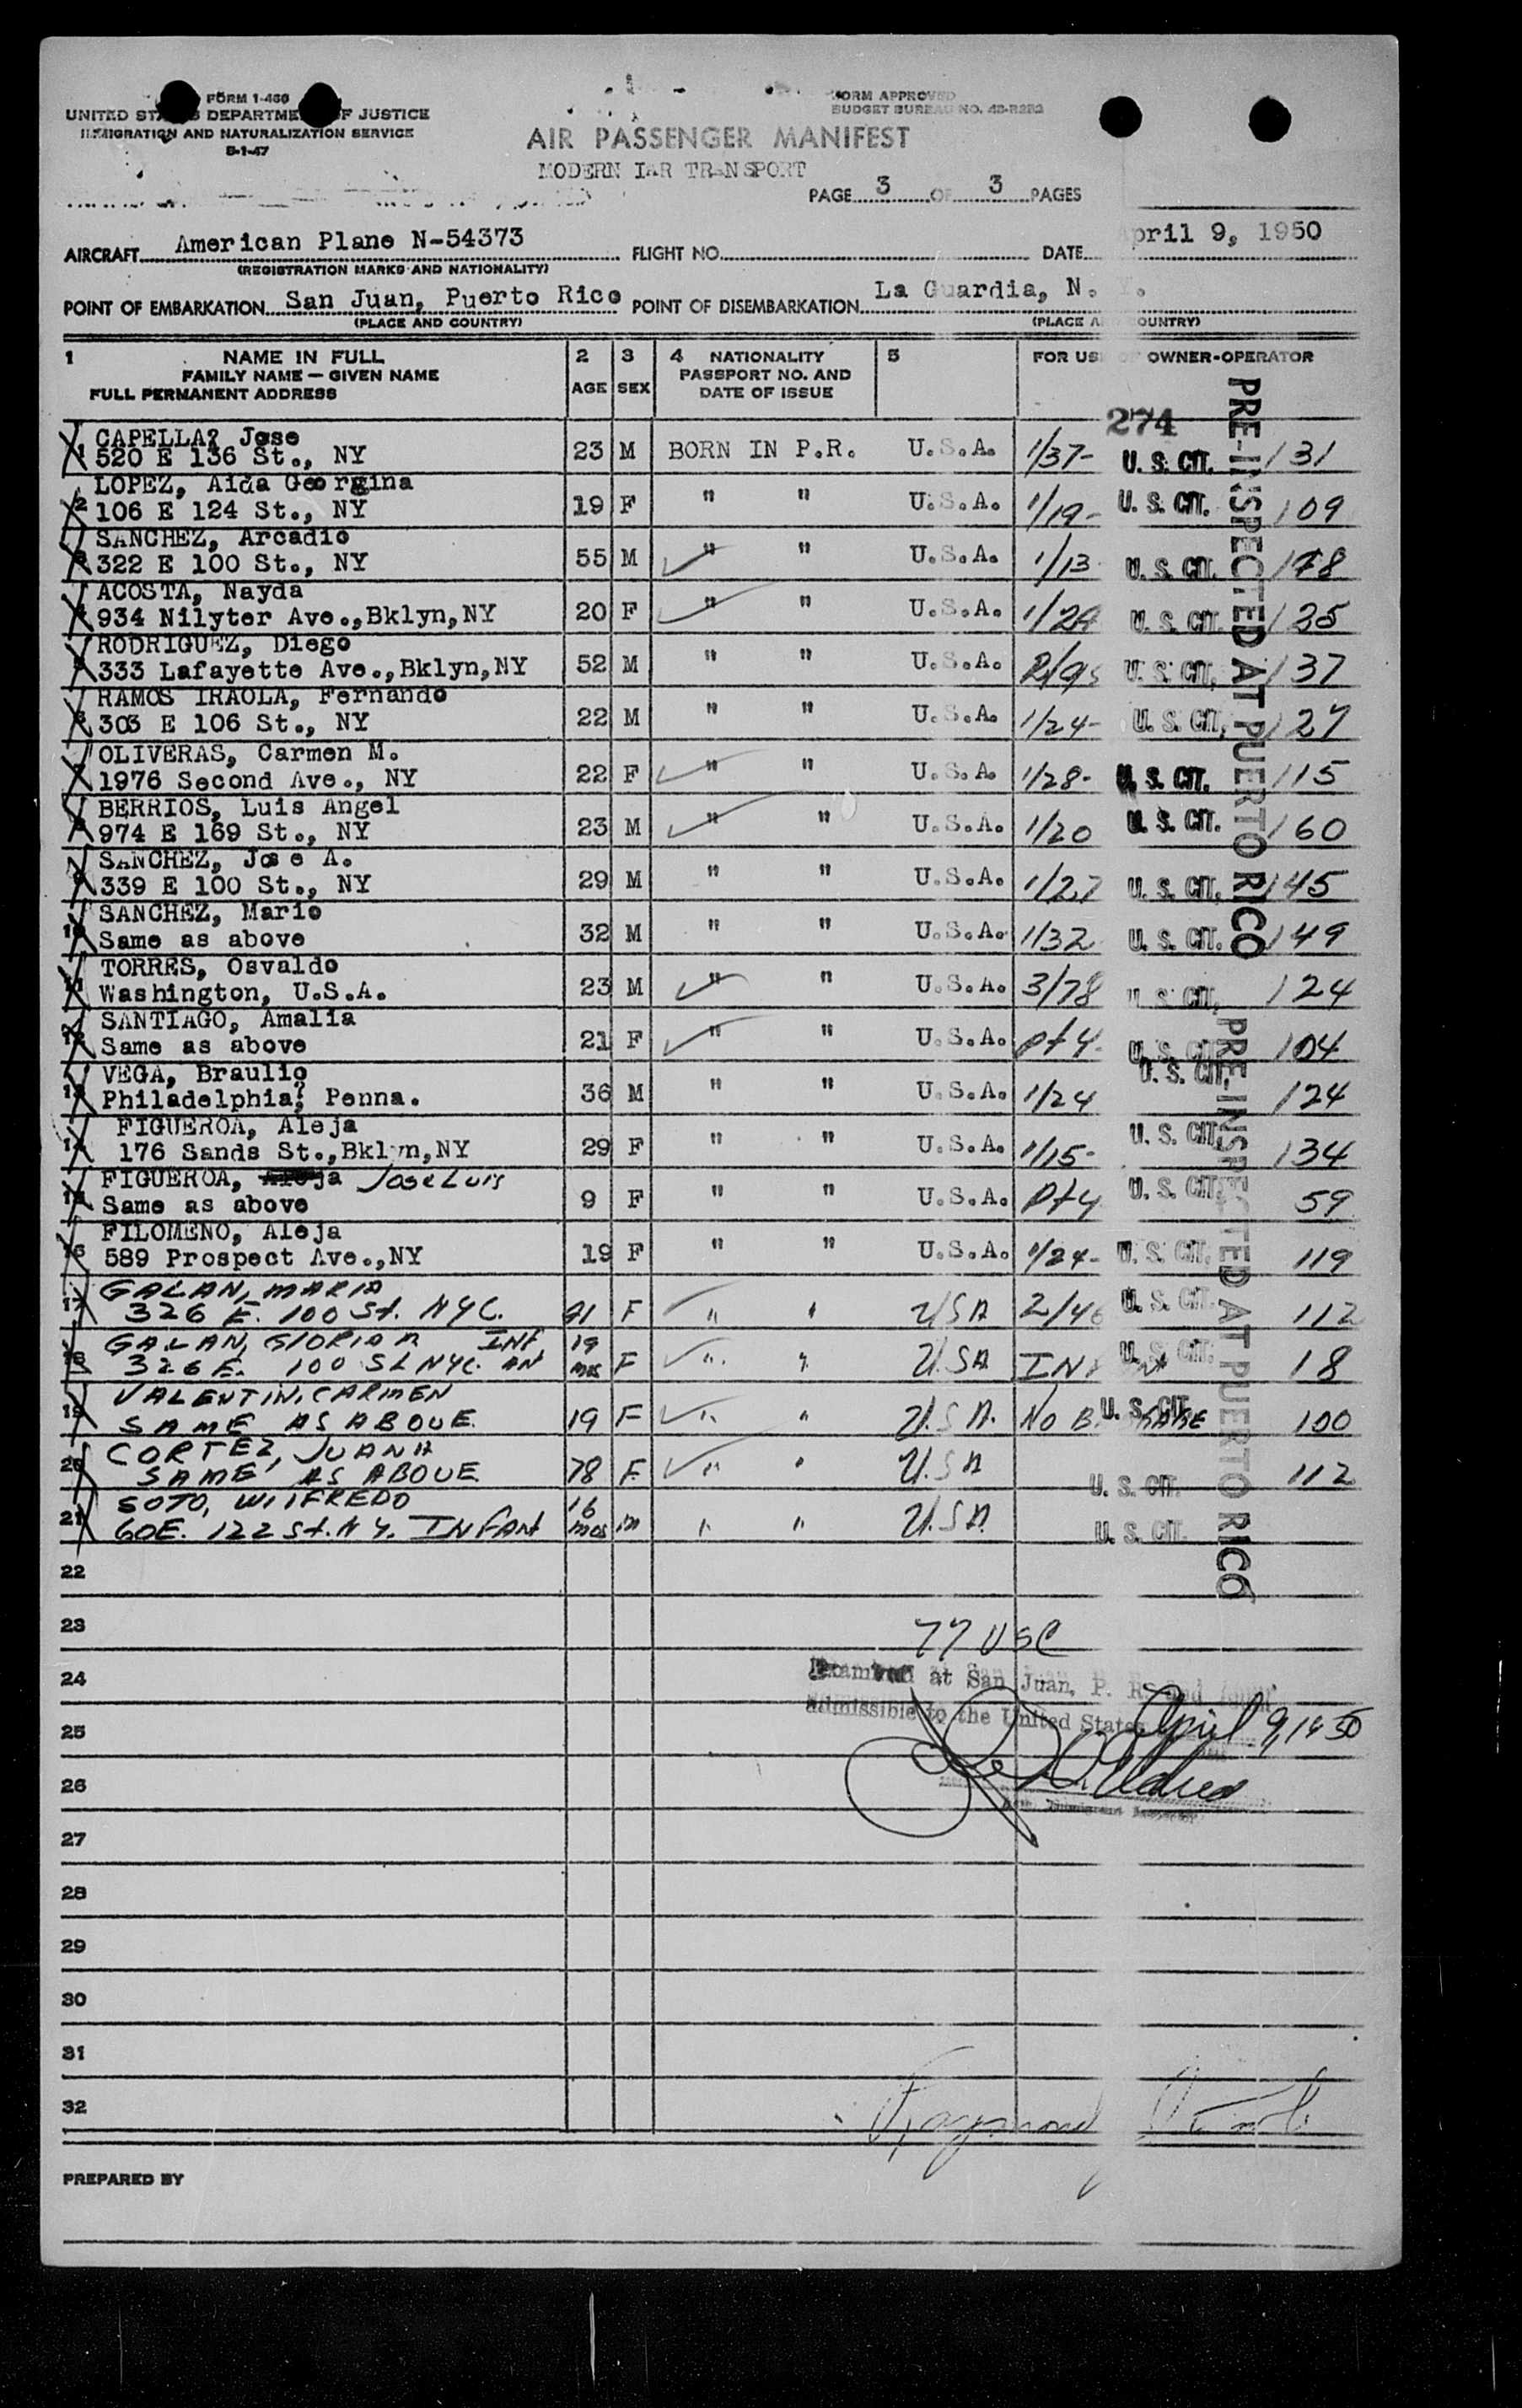 FORM I-466
UNITED STATES DEPARTMENT OF JUSTICE
IMMIGRATION AND NATURALIZATION SERVICE
5-1-47
FORM APPROVED
BUDGET BUREAU NO. 43-R282
AIR PASSENGER MANIFEST
MODERN IAR TRANSPORT
PAGE 3 OF 3 PAGES
AIRCRAFT American Plane N-54373 FLIGHT NO. DATE April 9, 1950
(REGISTRATION MARKS AND NATIONALITY)
POINT OF EMBARKATION San Juan, Puerto Rico POINT OF DISEMBARKATION La Guardia, N. Y.
(PLACE AND COUNTRY) (PLACE AND COUNTRY)
1 NAME IN FULL 2 3 4 NATIONALITY 5 FOR USE OF OWNER-OPERATOR
FAMILY NAME — GIVEN NAME AGE SEX PASSPORT NO. AND
FULL PERMANENT ADDRESS DATE OF ISSUE
274
PRE-INSPECTED AT PUERTO RICO
CAPELLA, Jose
1 520 E 136 St., NY 23 M BORN IN P.R. U.S.A. 1/37- U. S. CIT. 131
LOPEZ, Aida Georgina
2 106 E 124 St., NY 19 F " " U.S.A. 1/19- U. S. CIT. 109
SANCHEZ, Arcadio
3 322 E 100 St., NY 55 M " " U.S.A. 1/13 U. S. CIT. 178
ACOSTA, Nayda
4 934 Nilyter Ave.,Bklyn,NY 20 F " " U.S.A. U. S. CIT. 135
RODRIGUEZ, Diego
5 333 Lafayette Ave.,Bklyn,NY 52 M " " U.S.A. U. S. CIT. 137
RAMOS IRAOLA, Fernando
6 303 E 106 St., NY 22 M " " U.S.A. 1/24- U. S. CIT. 127
OLIVERAS, Carmen M.
7 1976 Second Ave., NY 22 F " " U.S.A. 1/28- U. S. CIT. 115
BERRIOS, Luis Angel
8 974 E 169 St., NY 23 M " " U.S.A. 1/20 U. S. CIT. 160
SANCHEZ, Jose A.
9 339 E 100 St., NY 29 M " " U.S.A. 1/27 U. S. CIT. 145
SANCHEZ, Mario
10 Same as above 32 M " " U.S.A. 1/32 U. S. CIT. 149
TORRES, Osvaldo
11 Washington, U.S.A. 23 M " " U.S.A. 3/78 U. S. CIT. 124
SANTIAGO, Amalia
12 Same as above 21 F " " U.S.A. Pt 4- U. S. CIT. 104
PRE-INSPECTED AT PUERTO RICO
VEGA, Braulio
13 Philadelphia, Penna. 36 M " " U.S.A. 1/24 U. S. CIT. 124
FIGUEROA, Aleja
14 176 Sands St.,Bklyn,NY 29 F " " U.S.A. 1/15- U. S. CIT. 134
FIGUEROA, Aleja Jose Luis
15 Same as above 9 F " " U.S.A. Pt 4 U. S. CIT. 59
FILOMENO, Aleja
16 589 Prospect Ave.,NY 19 F " " U.S.A. 1/24- U. S. CIT. 119
GALAN, MARIA
17 326 E. 100 St. NYC. F " " USA 2/46 U. S. CIT. 112
GALAN, GLORIA INF 19
18 326 E. 100 St NYC. mos F " " U.SA INFANT U. S. CIT. 18
VALENTIN, CARMEN
19 SAME AS ABOVE 19 F " " U.S A. NO BAGGAGE U. S. CIT. 100
CORTEZ, JUANA
20 SAME AS ABOVE 78 F. " " U.S A U. S. CIT. 112
SOTO, WILFREDO 16
21 60E. 122 St. N Y. INFANT mos m " " U.S A. U. S. CIT.
22
23
77 USC
24
Examined at San Juan, P. R. and found
admissible to the United States April 9, 1950
25
26
27
28
29
30
31
32
Raymond
PREPARED BY